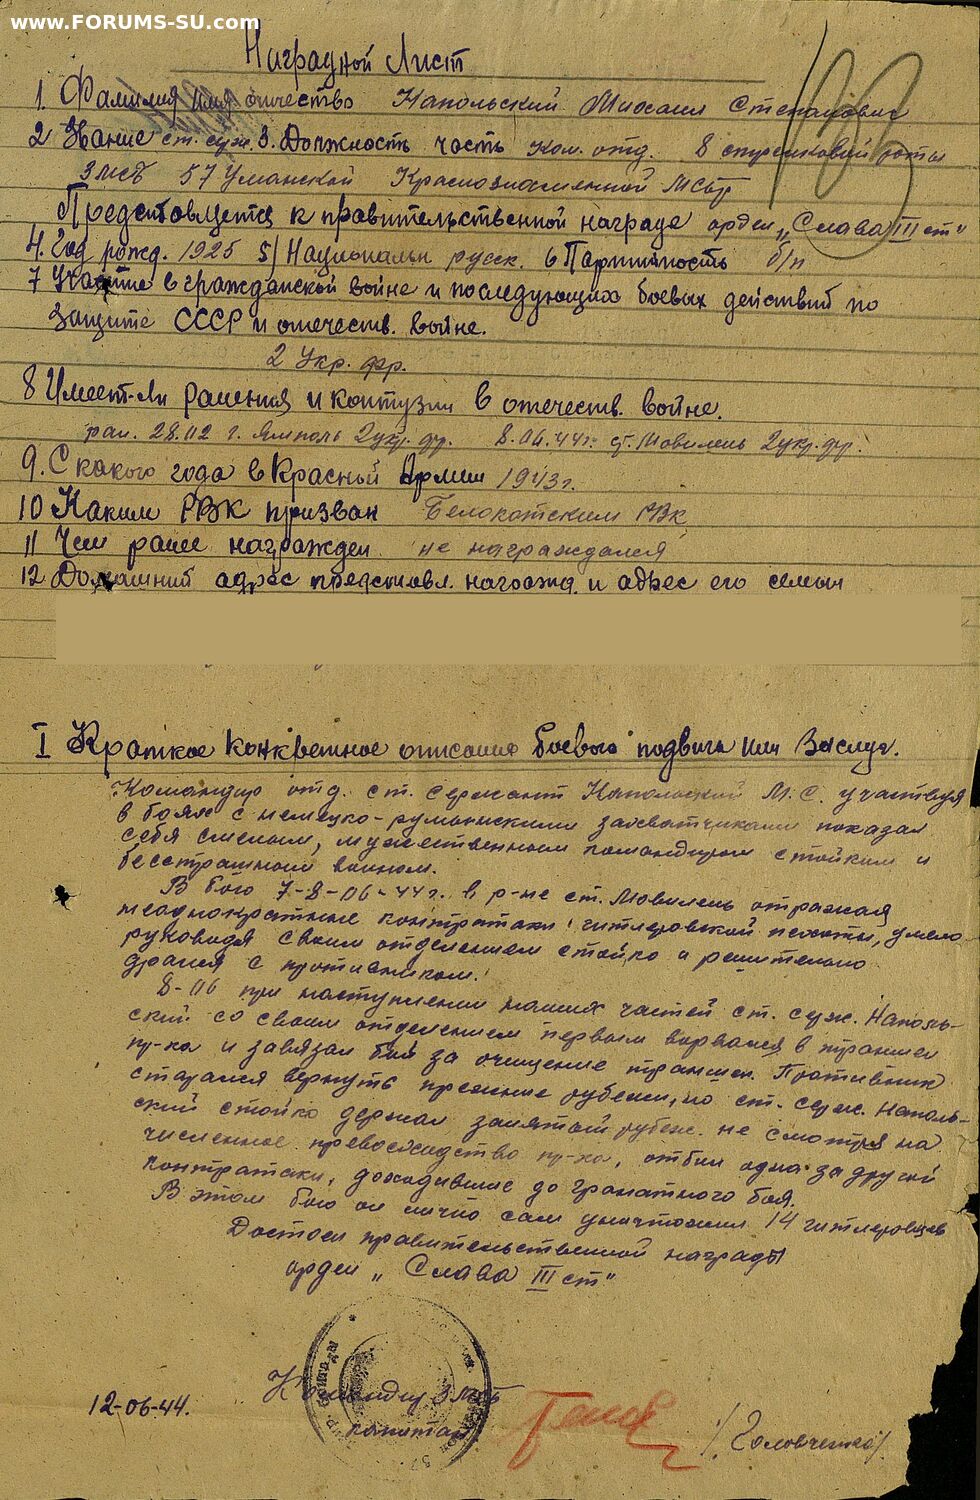 www.FORUMS-SU.com
Наградной Лист
1. Фамилия имя отчество Напольский Михаил Степанович
2 Звание ст. серж. 3. Должность часть ком. отд. 8 стрелковой роты
3 мсб 57 Уманской Краснознаменной Мсбр
Представляется к правительственной награде орден „Слава III ст"
4. Год рожд. 1925 5) Национальн русск. 6 Партийность б/п
7 Участие в гражданской войне и последующих боевых действий по
защите СССР и отечеств. войне.
2 Укр. фр.
8 Имеет-ли ранения и контузии в отечеств. войне.
ран. 28.02 г. Ямполь 2 укр. фр. 8.06.44 г. ст. Мовилень 2 укр. фр.
9. С какого года в Красной Армии 1943 г.
10 Каким РВК призван Белокатским РВК
11 Чем ранее награжден не награждался
12 Домашний адрес представл. награжд. и адрес его семьи
I Краткое конкретное описание боевого подвига или Заслуг.
Командир отд. ст. сержант Напольский М.С. участвуя
в боях с немецко-румынскими захватчиками показал
себя смелым, мужественным командиром стойким и
бесстрашным воином.
В бою 7-8-06-44 г. в р-не ст. Мовилень отражая
неоднократные контратаки гитлеровской пехоты, умело
руководя своим отделением стойко и решительно
дрался с противником.
8-06 при наступлении наших частей ст. серж. Наполь-
ский со своим отделением первым ворвался в траншеи
пр-ка и завязал бой за очищение траншеи. Противник
старался вернуть прежние рубежи, но ст. серж. Наполь-
ский стойко держал занятый рубеж. не смотря на
численное превосходство пр-ка, отбил одна за другой
контратаки, доходившие до гранатного боя.
В этом бою он лично сам уничтожил 14 гитлеровцев
Достоен правительственной награды
орден „Слава III ст"
Командир 3 мсб
12-06-44.
капитан /Головченко/